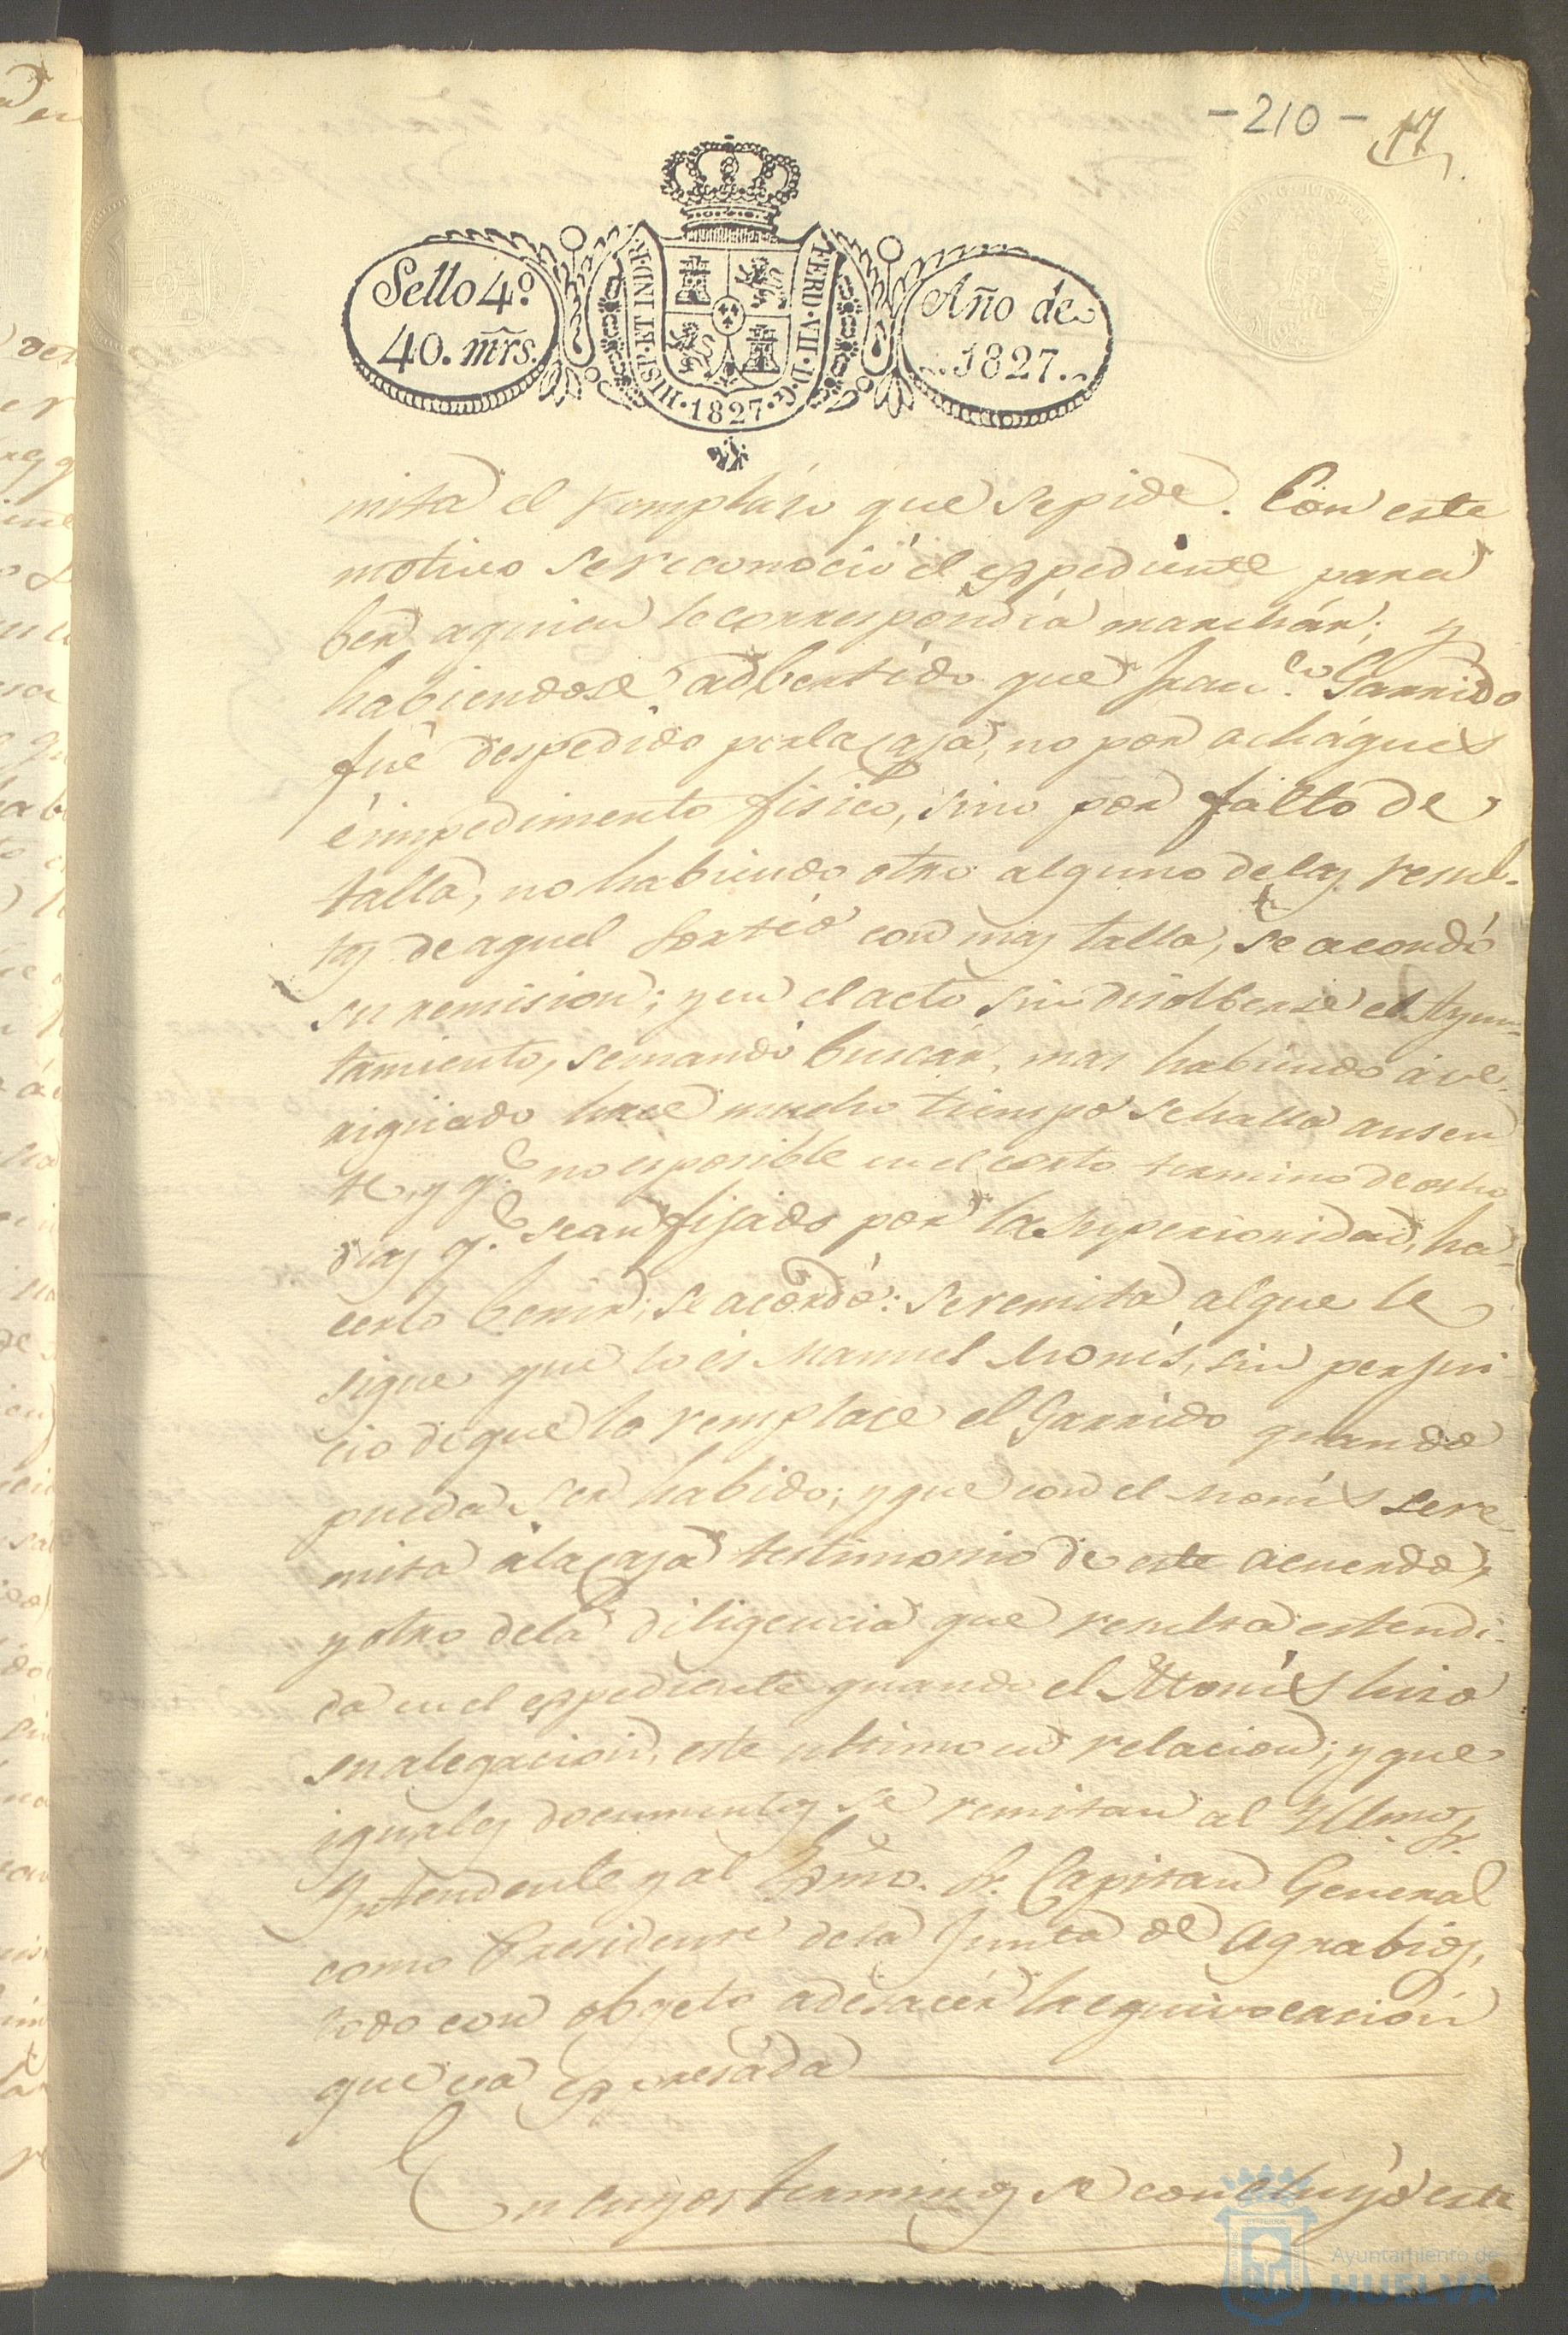 - 210 - 17
Sello 4.º
40. mrs.
HISP. ET IND. R. FERD. VII. D. G. 1827
Año de
1827.
mita el remplázo que se pide. Con este
motivo se reconoció el expediente para
ber aquien le correspondía marchár; y
habiendose adbertido que Fran.co Garrido
fué despedido por la caja, no por acháques
é impedimento fisico, sino por falto de
talla, no habiendo otro alguno de las resul-
tas de aquel sorteo con mas talla, se acordó
su remision; y en el acto sin disolberse el Ayun-
tamiento, se mandó buscár, mas habiendo ave-
riguado hace mucho tiempo se halla ausen
te, y q.e no es posible en el corto termino de ocho
dias q.e sean fijado por la superioridad, ha-
cerlo benir, se acordó: se remita al que le
sigue que lo és Manuel Monís, sin perjui-
cio de que lo remplace el Garrido quando
pueda ser habido; y que con el Monís se re-
mita a la caja testimonio de este acuerdo,
y otro de la diligencia que resulta estendi-
da en el expediente quando el Monís hizo
su alegacion, este ultimo en relacion; y que
iguales documentos se remitan al Yllmo. Sr.
Yntendente y al Exmo. Sr. Capitan General
como Presidente de la Junta de Agrabios,
todo con obgeto adesacér la equivocación
que va expresáda
En cuyos terminos se concluyó este
Ayuntamiento de
HUELVA